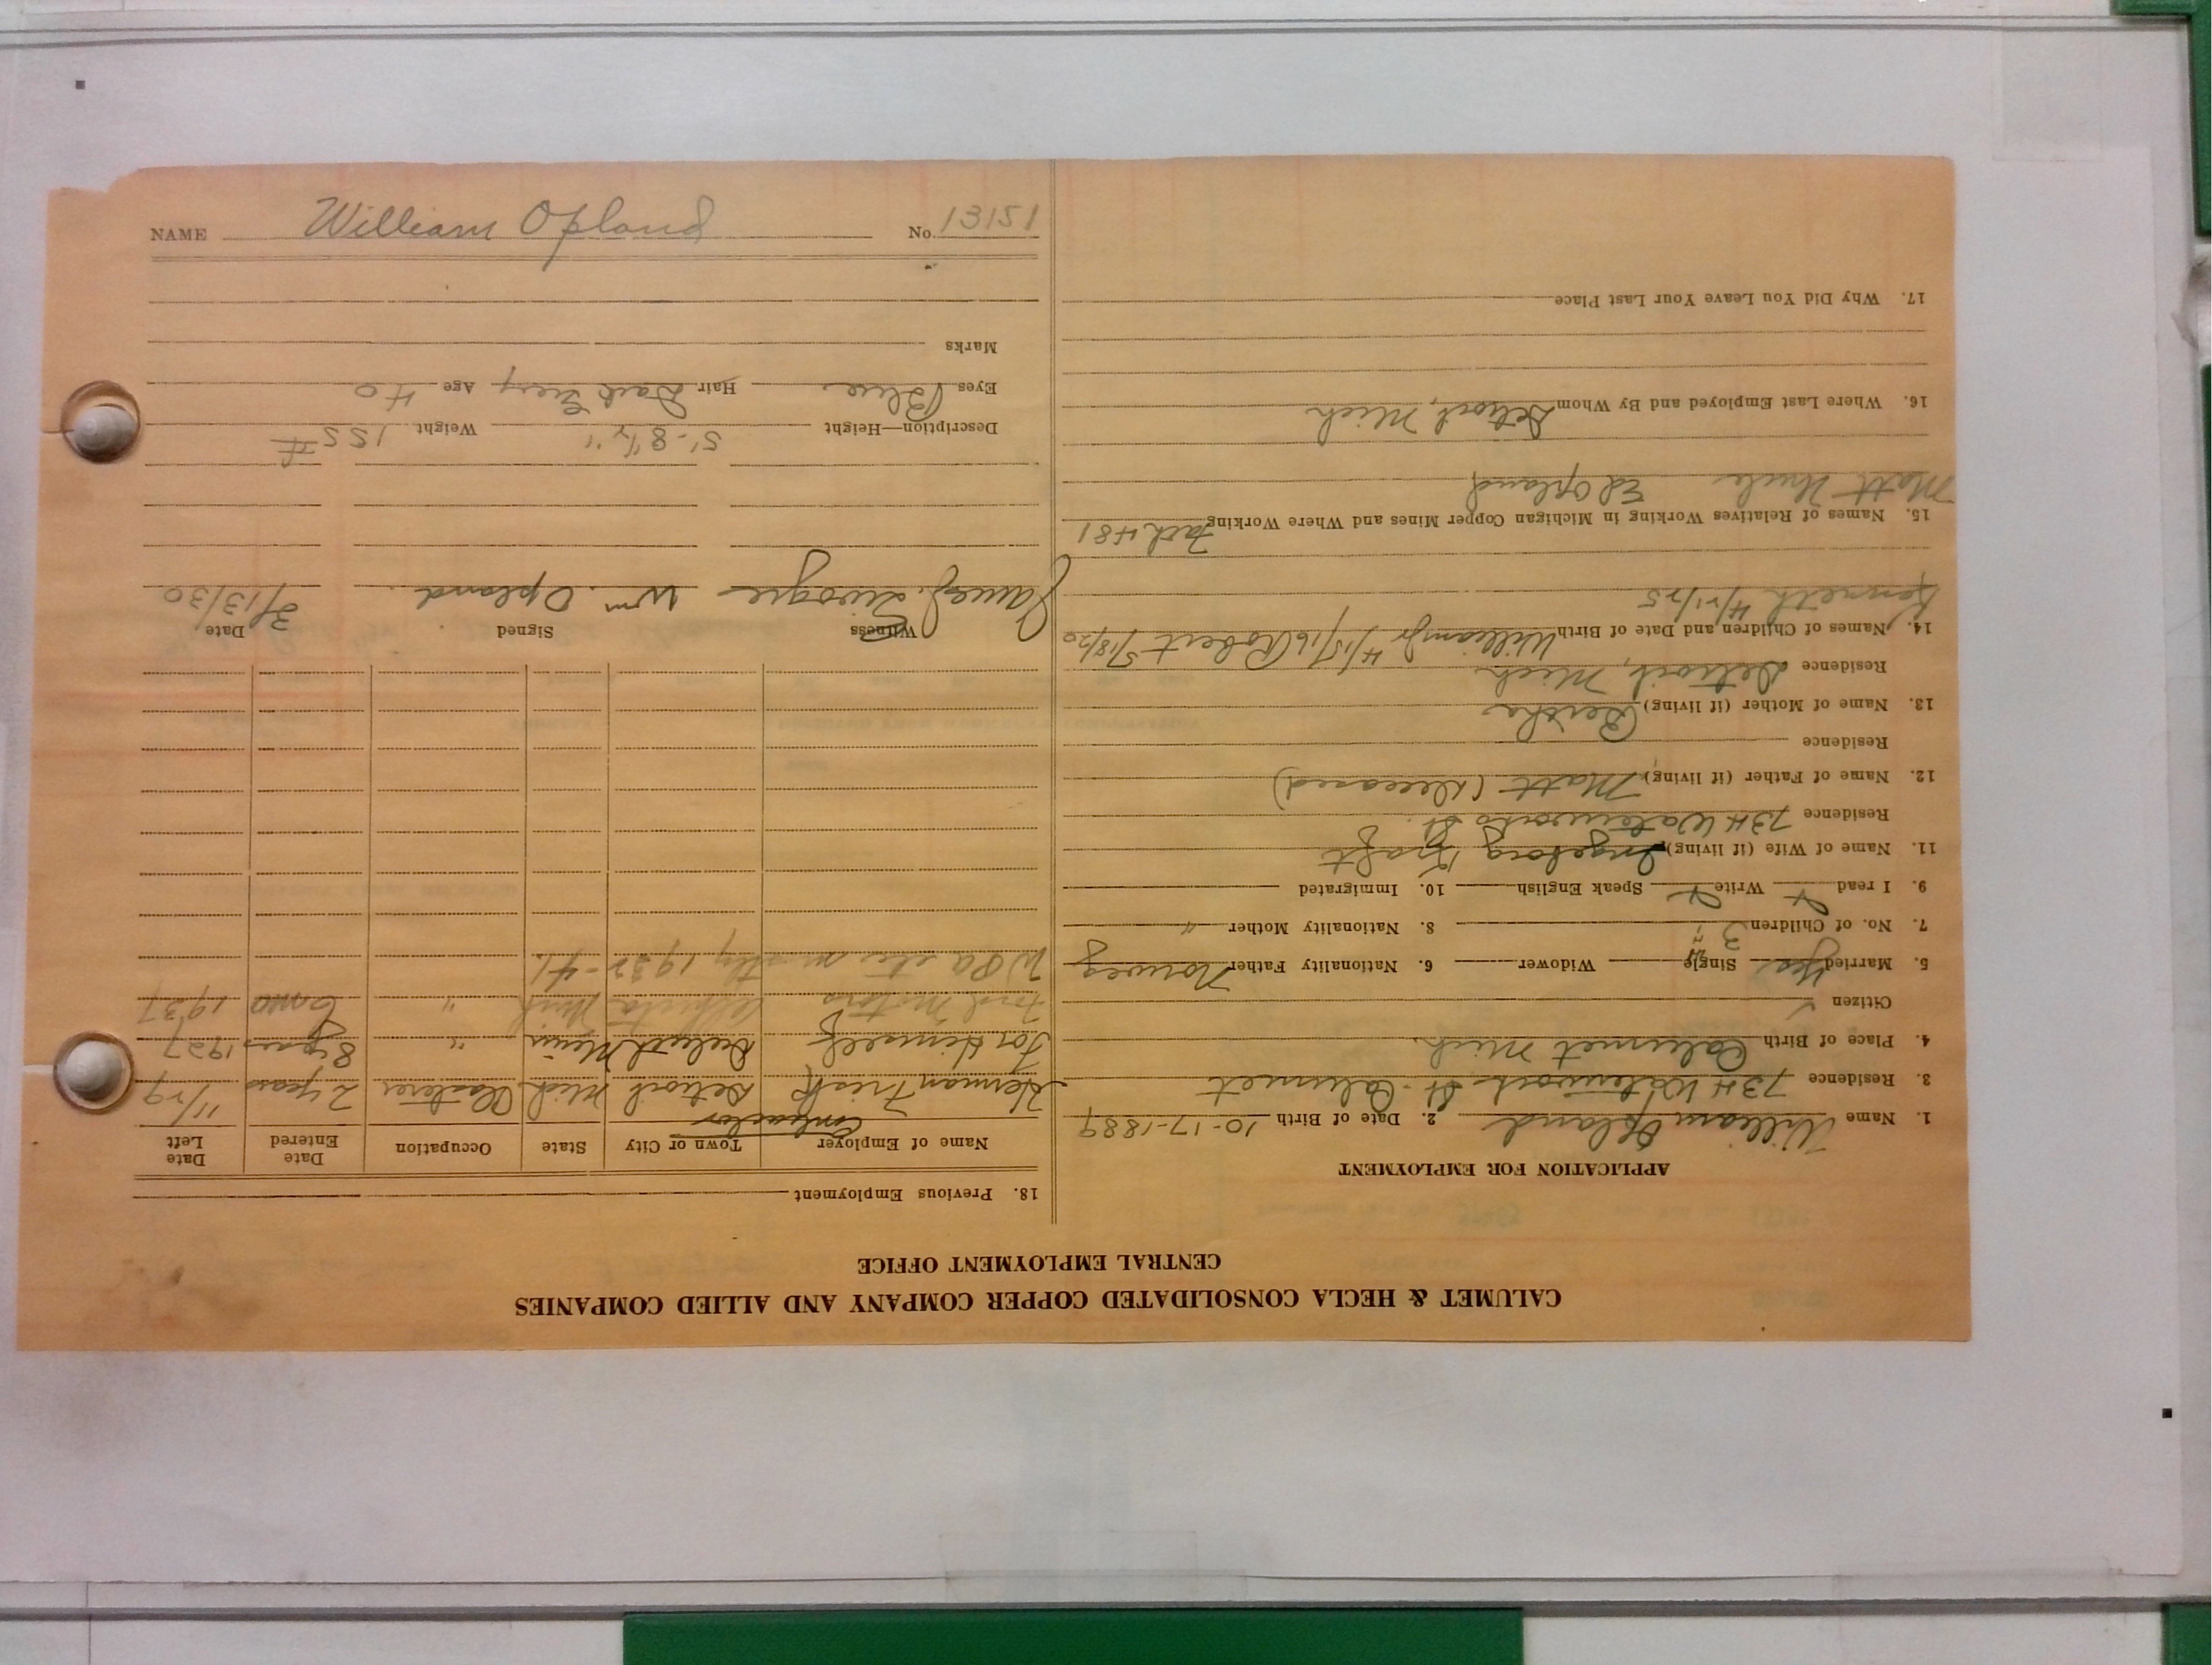 CALUMET & HECLA CONSOLIDATED COPPER COMPANY AND ALLIED COMPANIES
CENTRAL EMPLOYMENT OFFICE
APPLICATION FOR EMPLOYMENT
1. Name William Opland 2. Date of Birth 10-17-1889
3. Residence 734 Waterworks St. Calumet
4. Place of Birth Calumet Mich.
Citizen ✓
5. Married Yes Single Widower 6. Nationality Father Norweg
7. No. of Children 3 8. Nationality Mother "
9. I read Write Speak English 10. Immigrated
11. Name of Wife (if living) Ingeborg Kraft
Residence 734 Waterworks St.
12. Name of Father (if living) Matt (Deceased)
Residence
13. Name of Mother (if living) Bertha
Residence Detroit, Mich
14. Names of Children and Date of Birth William Jr 4/15/16 Robert 5/18/20
Kenneth 4/21/25
15. Names of Relatives Working in Michigan Copper Mines and Where Working
Matt Uncle Ed Opland
16. Where Last Employed and By Whom Detroit, Mich
17. Why Did You Leave Your Last Place
18. Previous Employment
Name of Employer Town or City State Occupation Date Entered Date Left
Contractor
Herman Frisk Detroit Mich Plasterer 2 years 11/29
For Himself Duluth Minn " 8 years 1927
Ford Motors Mich " 6 mo 1937
WPA etc mostly 1932-41.
Witness Signed Date
James J. Wm. Opland 3/13/30
Description—Height 5'-8½" Weight 155 #
Eyes Blue Hair Dark Grey Age 40
Marks
NAME William Opland No. 13151